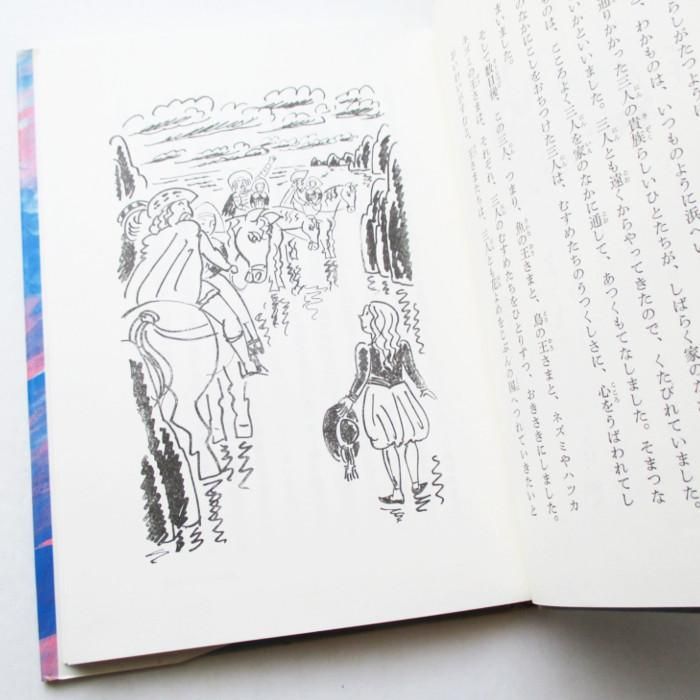 らしがたつよう
、わかものは、いつものように浜
通りかかった三人の貴族らしいひとたちが、しばらく家の
いかといいました。三人とも遠くからやってきたので、くたびれていました。
ものは、こころよく三人を家のなかに通して、あつくもてなしました。そまつな
のなかにこしをおちつけた三人は、むすめたちのうつくしさに、心をうばわれてし
まいました。
そして数日後、この三人、つまり、魚の王さまと、鳥の王さまと、ネズミやハツカ
ネズミの王さまは、それぞれ、三人のむすめたちをひとりずつ、おきさきにしました。
王さまたちは、三人とも花よめをじぶんの国へつれていきたいと